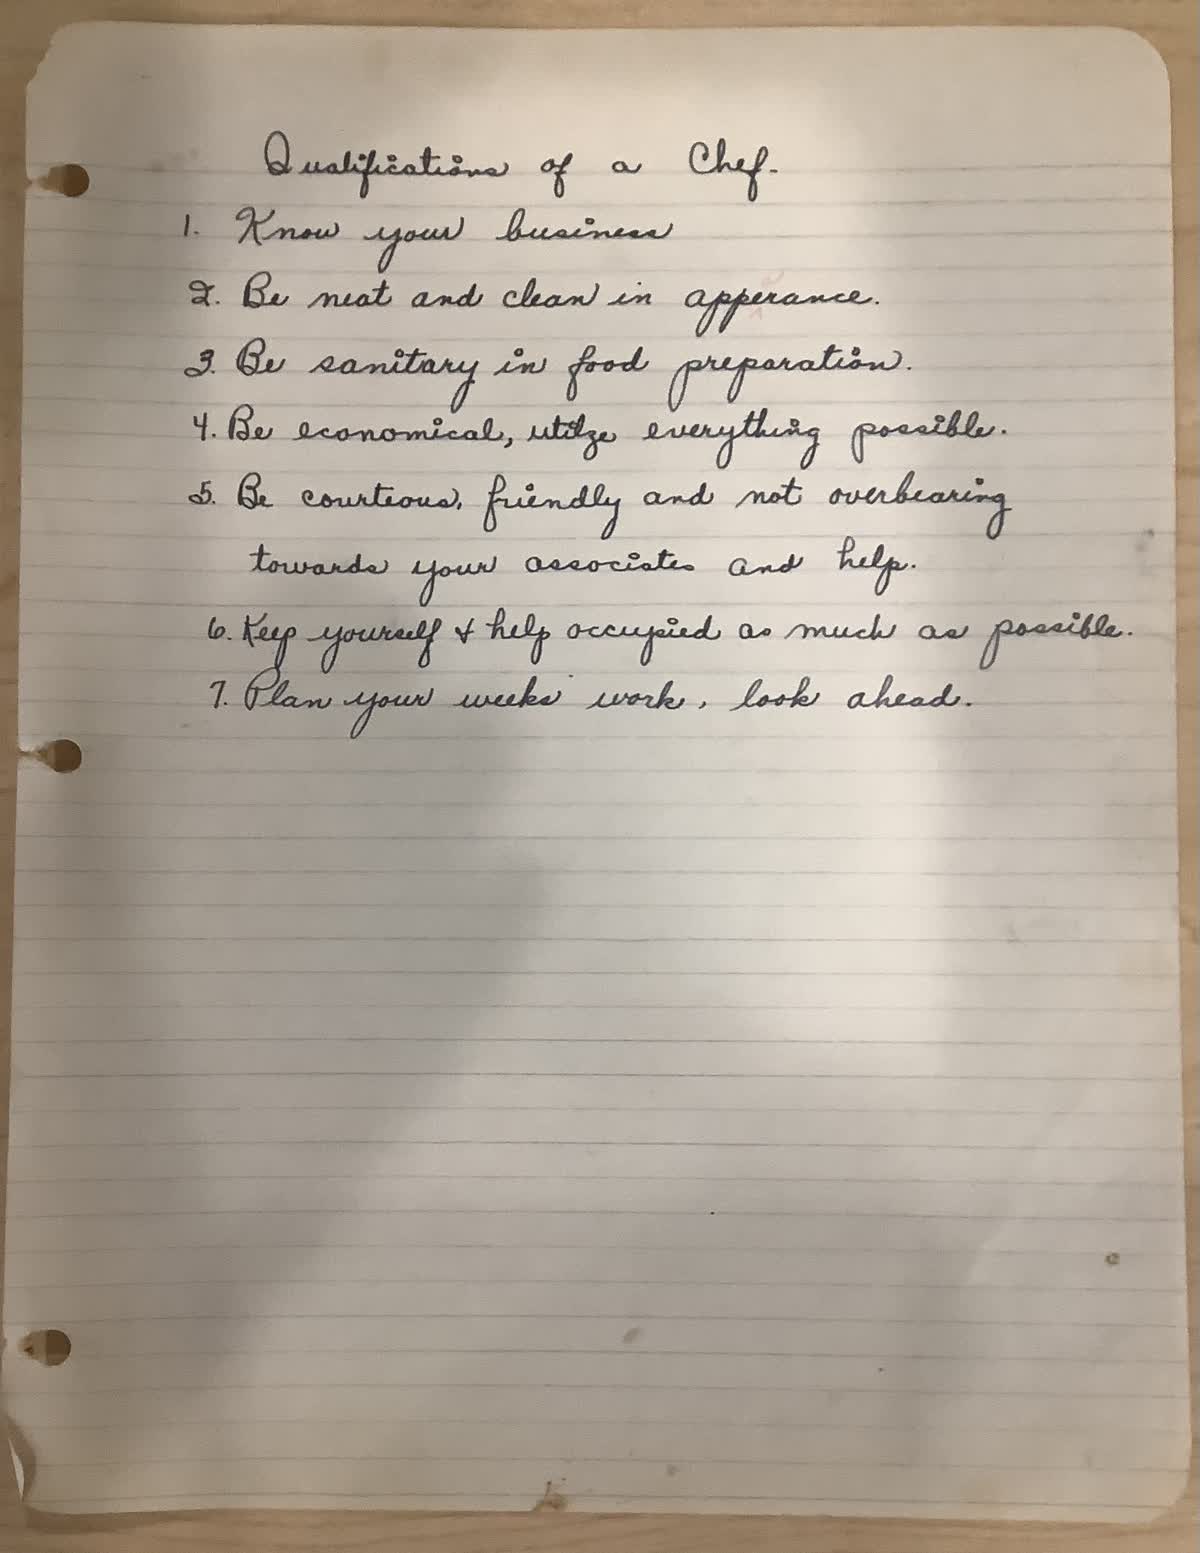 Qualifications of a Chef.
1. Know your business
2. Be neat and clean in apperance.
3. Be sanitary in food preparation.
4. Be economical, utilze everything possible.
5. Be courteous, friendly and not overbearing
towards your associates and help.
6. Keep yourself & help occupied as much as possible.
7. Plan your weeks work, look ahead.